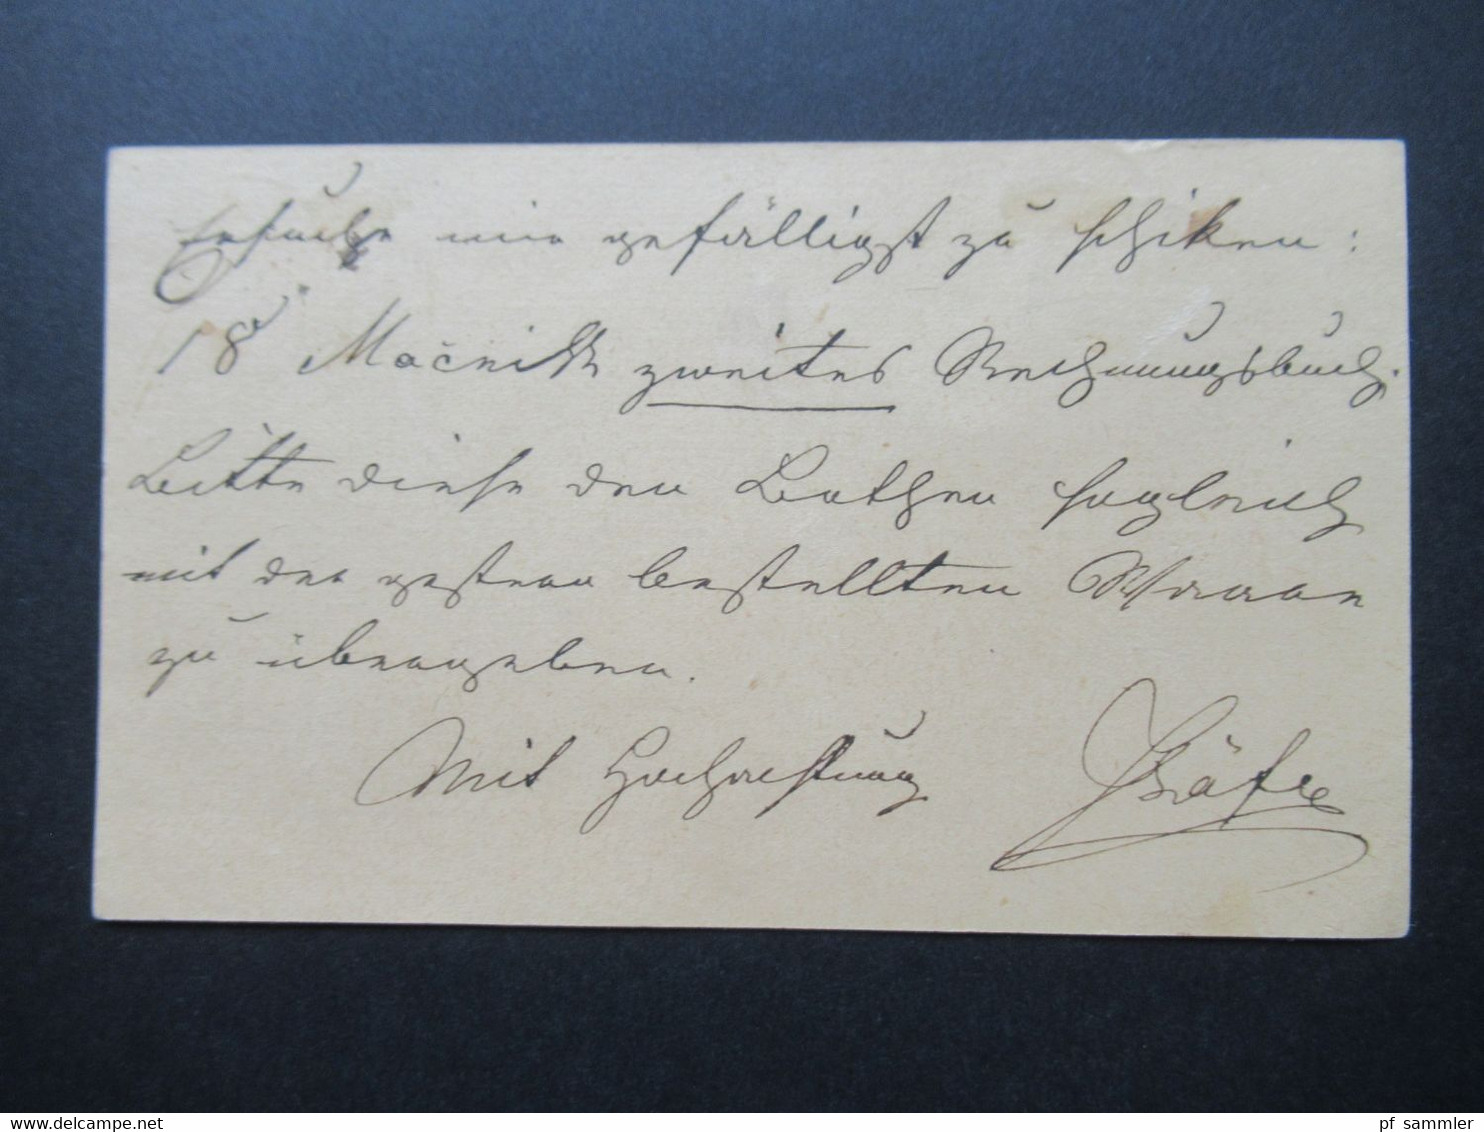 Ersuche mir gefälligst zu schiken:
18 Močnik zweites Rechnungsbuch.
Bitte diese den Bothen sogleich
mit der gestern bestellten Waare
zu übergeben.
Mit Hochachtung
pf_sammler
www.delcampe.net